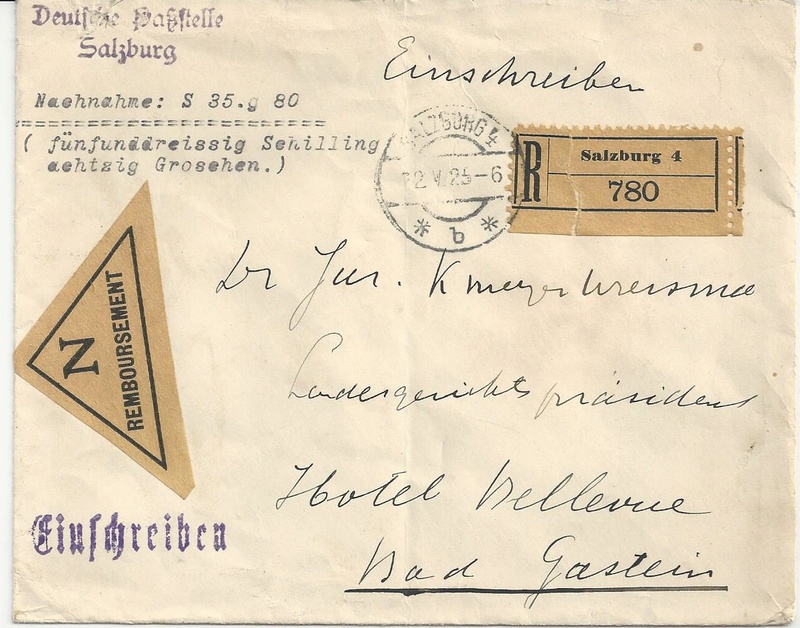 Deutsche Paßstelle
Salzburg
Nachnahme: S 35.g 80
( fünfunddreissig Schilling
achtzig Groschen.)
Einschreiben
SALZBURG 4
2 V 25-6
* b *
R
Salzburg 4
780
N
REMBOURSEMENT
Dr Jur.
Landesgerichtspräsident
Hotel Bellevue
Bad Gastein
Einschreiben